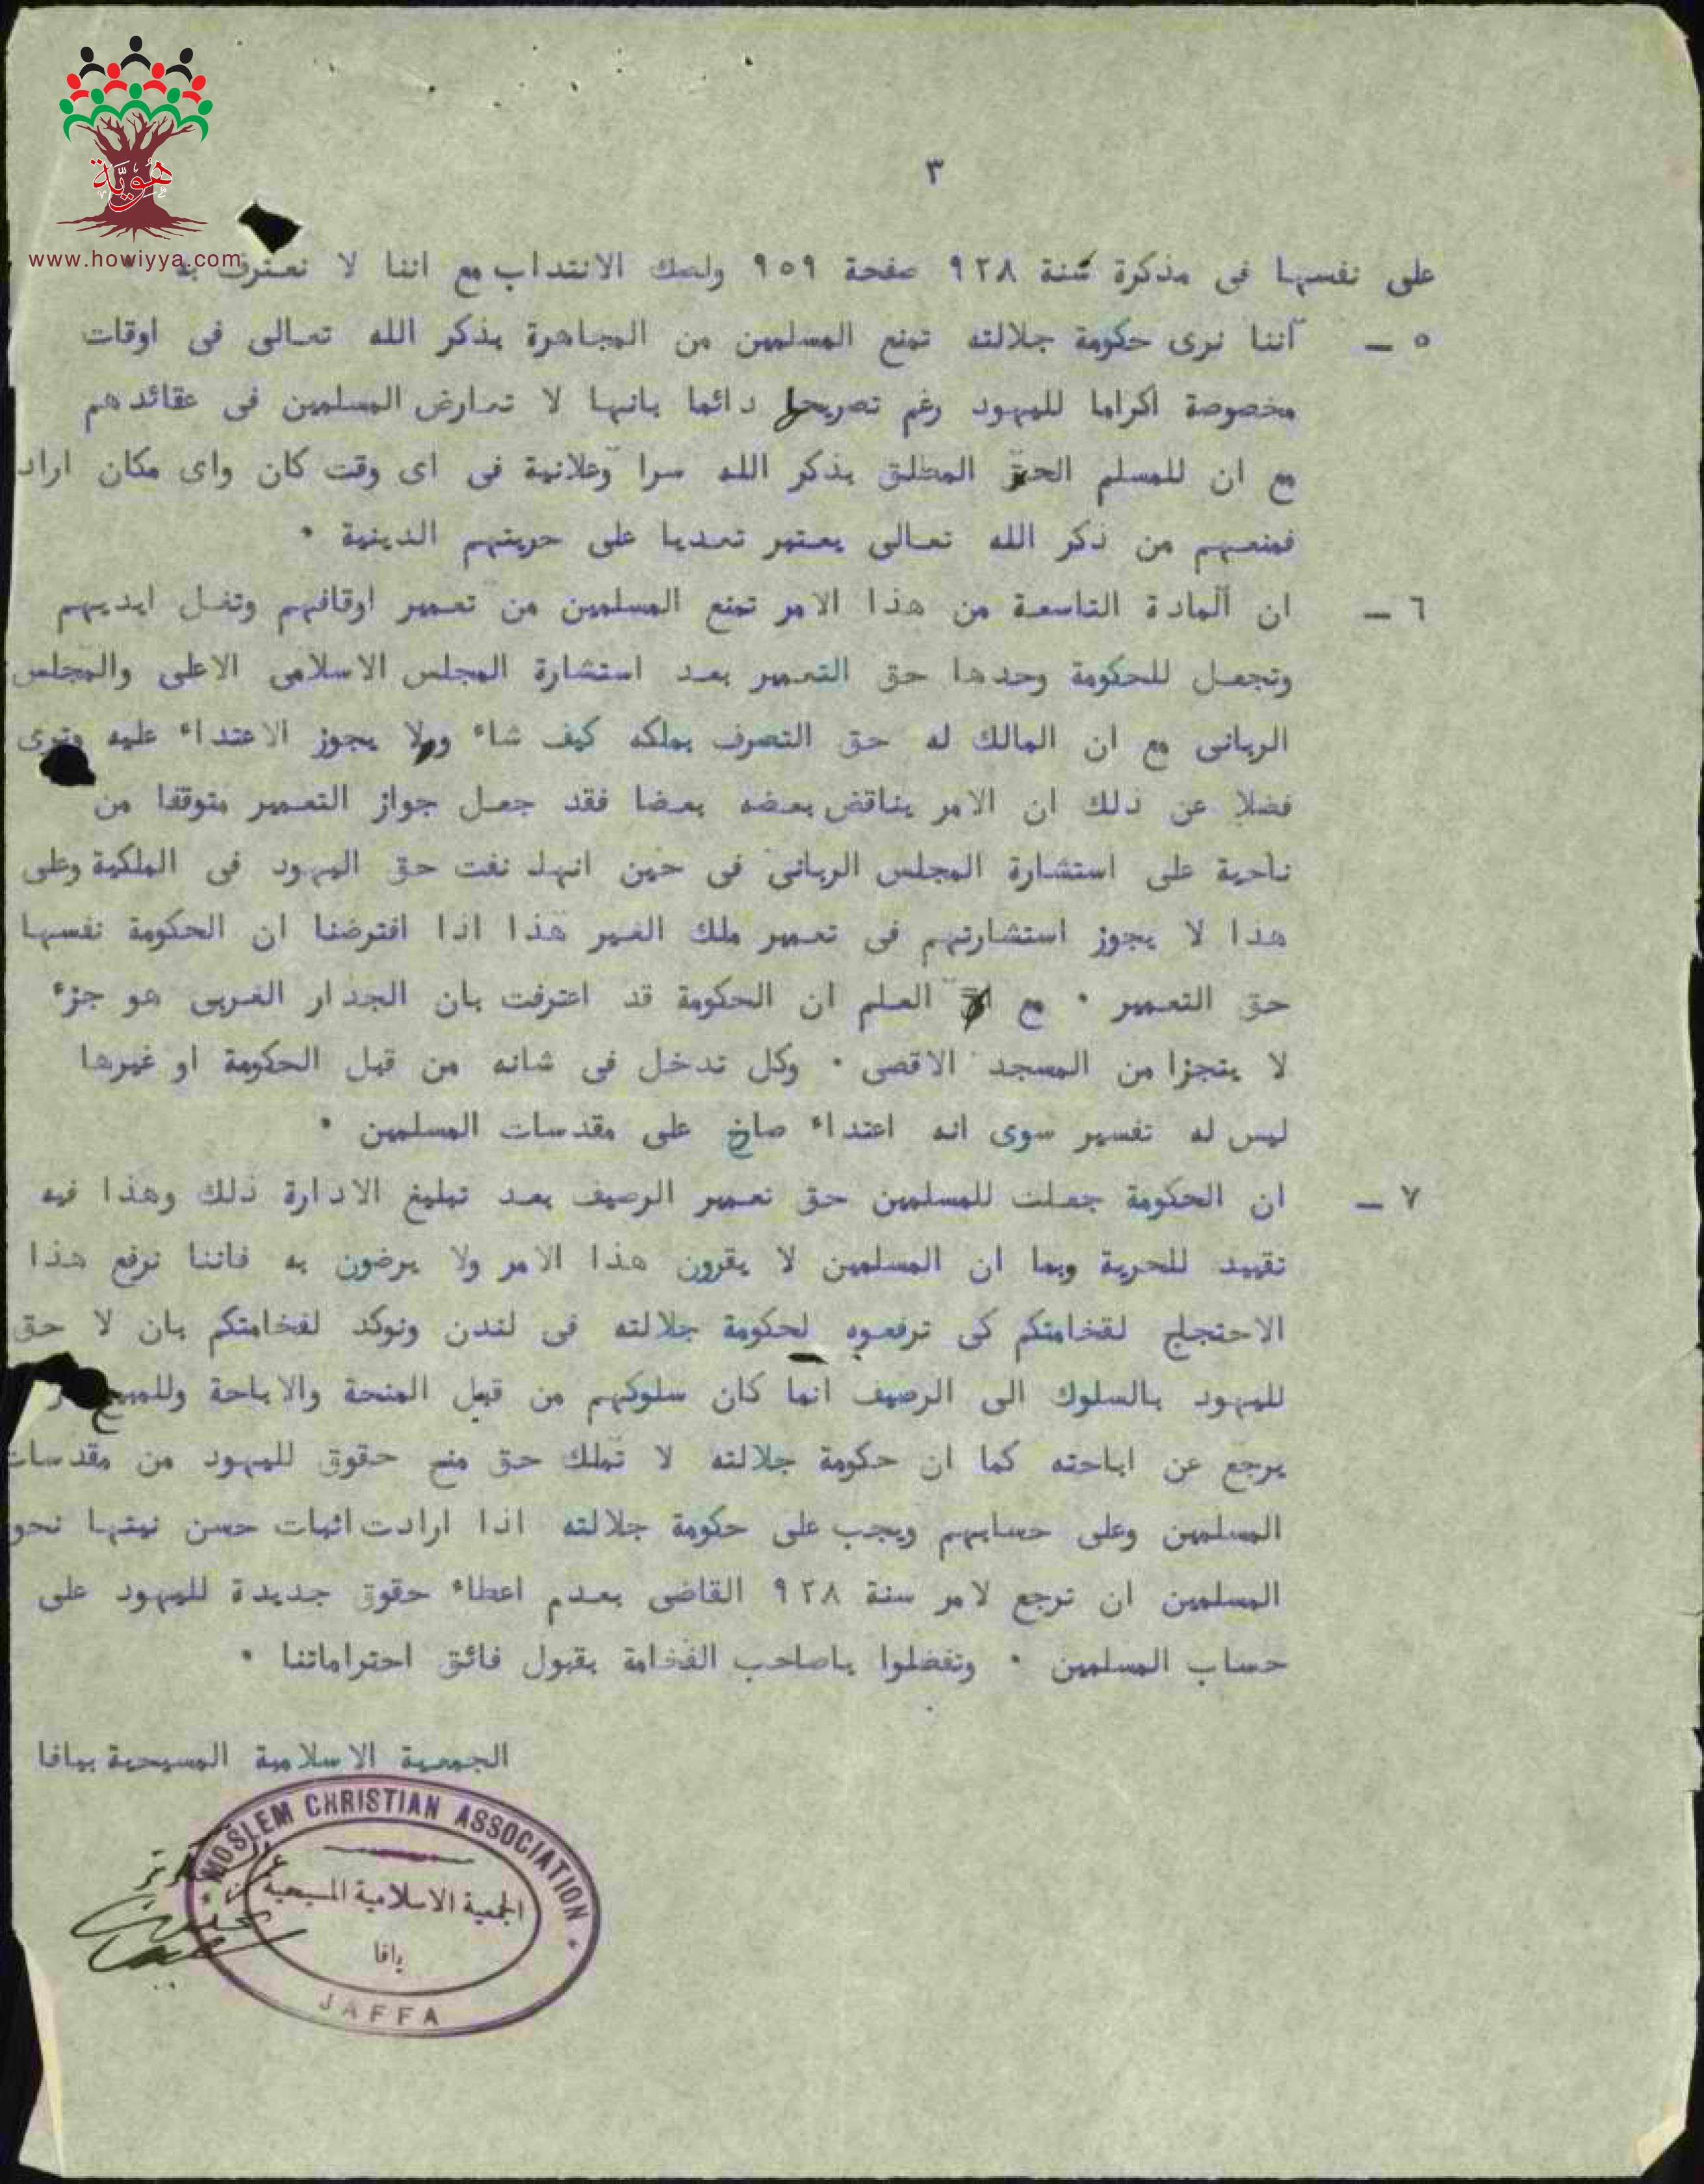 هُوِيَّة
www.howiyya.com
٣
على نفسها فى مذكرة سنة ٩٢٨ صفحة ٩٥٩ ولصك الانتداب مع اننا لا نعترف به
٥ ـ اننا نرى حكومة جلالته تمنع المسلمين من المجاهرة بذكر الله تعالى فى اوقات
مخصوصة اكراما لليهود رغم تصريحها دائما بانها لا تعارض المسلمين فى عقائدهم
مع ان للمسلم الحق المطلق بذكر الله سرا وعلانية فى اى وقت كان واى مكان اراد
فمنعهم من ذكر الله تعالى يعتبر تعديا على حريتهم الدينية ٠
٦ ـ ان المادة التاسعة من هذا الامر تمنع المسلمين من تعمير اوقافهم وتغل ايديهم
وتجعل للحكومة وحدها حق التعمير بعد استشارة المجلس الاسلامى الاعلى والمجلس
الربانى مع ان المالك له حق التصرف بملكه كيف شاء ولا يجوز الاعتداء عليه ونرى
فضلا عن ذلك ان الامر يناقض بعضه بعضا فقد جعل جواز التعمير متوقفا من
ناحية على استشارة المجلس الربانى فى حين انها نفت حق اليهود فى الملكية وعلى
هذا لا يجوز استشارتهم فى تعمير ملك الغير هذا اذا افترضنا ان الحكومة نفسها
حق التعمير ٠ مع العلم ان الحكومة قد اعترفت بان الجدار الغربى هو جزء
لا يتجزا من المسجد الاقصى ٠ وكل تدخل فى شانه من قبل الحكومة او غيرها
ليس له تفسير سوى انه اعتداء صارخ على مقدسات المسلمين ٠
٧ ـ ان الحكومة جعلت للمسلمين حق تعمير الرصيف بعد تبليغ الادارة ذلك وهذا فيه
تقييد للحرية وبما ان المسلمين لا يقرون هذا الامر ولا يرضون به فاننا نرفع هذا
الاحتجاج لفخامتكم كى ترفعوه لحكومة جلالته فى لندن ونوكد لفخامتكم بان لا حق
لليهود بالسلوك الى الرصيف انما كان سلوكهم من قبل المنحة والاباحة وللمبيح
يرجع عن اباحته كما ان حكومة جلالته لا تملك حق منح حقوق لليهود من مقدسات
المسلمين وعلى حسابهم ويجب على حكومة جلالته اذا ارادت اثبات حسن نيتها نحو
المسلمين ان ترجع لامر سنة ٩٢٨ القاضى بعدم اعطاء حقوق جديدة لليهود على
حساب المسلمين ٠ وتفضلوا ياصاحب الفخامة بقبول فائق احتراماتنا ٠
الجمعية الاسلامية المسيحية بيافا
MOSLEM CHRISTIAN ASSOCIATION
الجمعية الاسلامية المسيحية
يافا
JAFFA